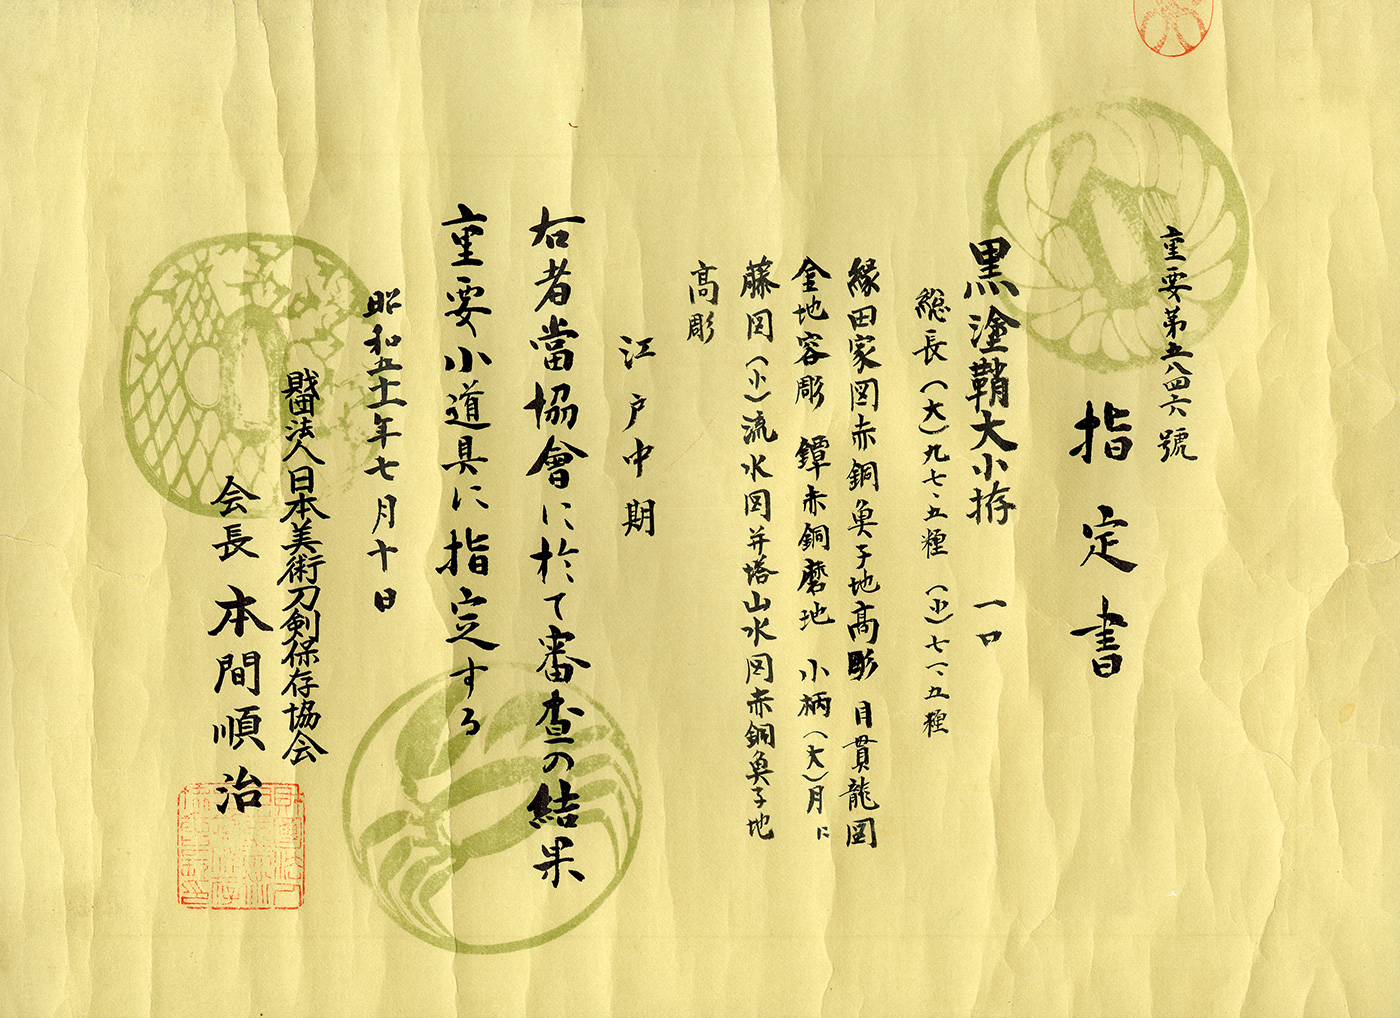 重要第五八四六號
指定書
黒塗鞘大小拵 一口
総長（大）九七・五糎（小）七一・五糎
縁田家図赤銅魚子地高彫 目貫龍図
金地容彫 鐔赤銅磨地 小柄（大）月に
藤図（小）流水図并塔山水図赤銅魚子地
高彫
江戸中期
右者當協會に於て審査の結果
重要小道具に指定する
昭和五十一年七月十日
財団法人日本美術刀剣保存協会
会長 本間順治